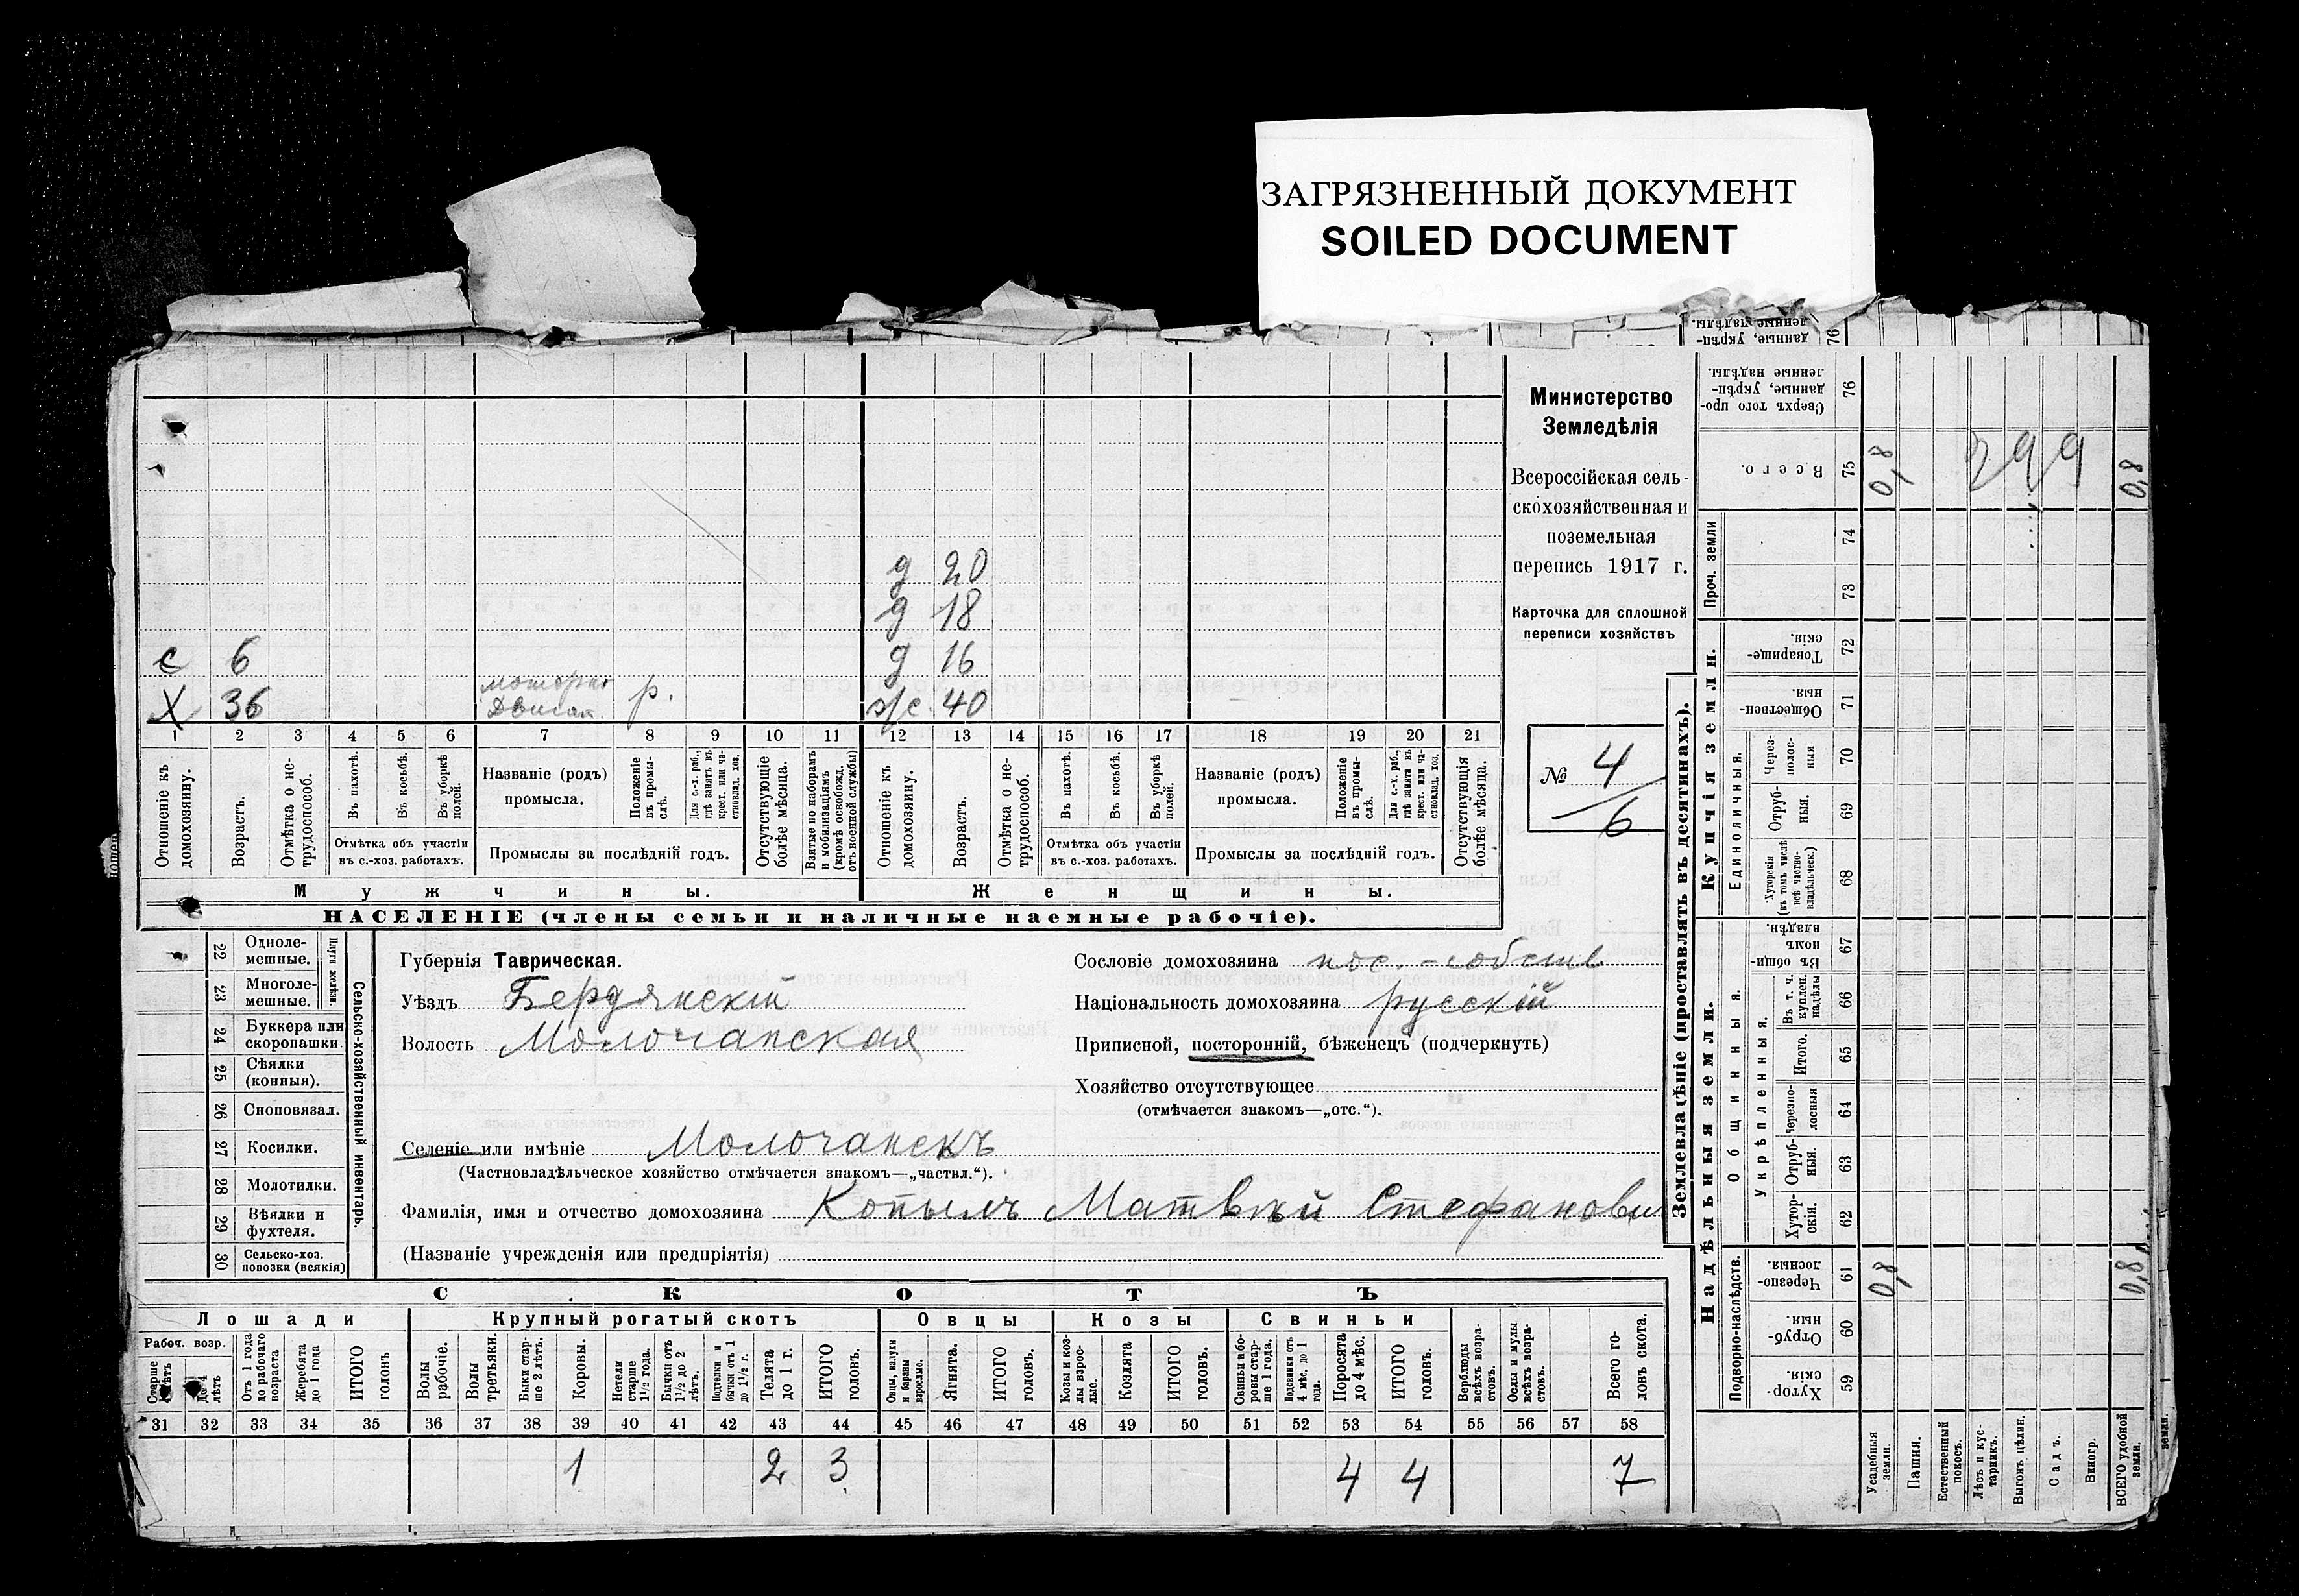 ЗАГРЯЗНЕННЫЙ ДОКУМЕНТ
SOILED DOCUMENT
Министерство
Земледѣлія
Всероссійская сель-
скохозяйственная и
поземельная
перепись 1917 г.
Карточка для сплошной
переписи хозяйствъ
№ 4
6
д 20
д 18
с 6 д 16
Х 36 р. 40
1 2 3 4 5 6 7 8 9 10 11 12 13 14 15 16 17 18 19 20 21
Отношеніе къ домохозяину.
Возрастъ.
Отмѣтка о не-трудоспособ.
Въ пахотѣ.
Въ косьбѣ.
Въ уборкѣ полей.
Отмѣтка объ участіи
въ с.-хоз. работахъ.
Названіе (родъ)
промысла.
Положеніе въ промы-слѣ.
Для с.-х. раб., гдѣ занятъ въ крест. или ча-стновлад. хоз.
Промыслы за послѣдній годъ.
Отсутствующіе болѣе мѣсяца.
Взятые по наборамъ и мобилизаціямъ (кромѣ освобожд. отъ военной службы)
Отношеніе къ домохозяину.
Возрастъ.
Отмѣтка о не-трудоспособ.
Въ пахотѣ.
Въ косьбѣ.
Въ уборкѣ полей.
Отмѣтка объ участіи
въ с.-хоз. работахъ.
Названіе (родъ)
промысла.
Положеніе въ промы-слѣ.
Для с.-х. раб., гдѣ занята въ крест. или ча-стновлад. хоз.
Промыслы за послѣдній годъ.
Отсутствующія болѣе мѣсяца.
Мужчины. Женщины.
НАСЕЛЕНІЕ (члены семьи и наличные наемные рабочіе).
22 Одноле-мешные.
23 Многоле-мешные.
Плуги желѣзн.
24 Буккера или скоропашки.
25 Сѣялки (конныя).
26 Сноповязал.
27 Косилки.
28 Молотилки.
29 Вѣялки и фухтеля.
30 Сельско-хоз. повозки (всякія)
Сельско-хозяйственный инвентарь.
Губернія Таврическая.
Уѣздъ Бердянскій
Волость Молочанская
Сословіе домохозяина пос.-собств
Національность домохозяина русскій
Приписной, посторонній, бѣженецъ (подчеркнуть)
Хозяйство отсутствующее
(отмѣчается знакомъ—„отс.“).
Селеніе или имѣніе Молочанскъ
(Частновладѣльческое хозяйство отмѣчается знакомъ—„частвл.“).
Фамилія, имя и отчество домохозяина Копылъ Матвѣй Стефанови
(Названіе учрежденія или предпріятія)
СКОТЪ
Лошади Крупный рогатый скотъ Овцы Козы Свиньи
Рабоч. возр.
Старше лѣтъ
до 4 лѣтъ
Отъ 1 года до рабочаго возраста
Жеребята до 1 года
ИТОГО головъ
Волы рабочіе.
Волы третьяки.
Быки стар-ше 2 лѣтъ.
Коровы.
Нетели старше 1½ года.
Бычки отъ 1½ до 2 лѣтъ.
бычки отъ 1 до 1½ г.
Телята до 1 г.
ИТОГО головъ.
Овцы, валухи и бараны взрослые.
Ягнята.
ИТОГО головъ.
Козы и коз-лы взрос-лые.
Козлята
ИТОГО головъ.
Свиньи и бо-ровы стар-ше 1 года.
Подсвинки отъ 4 мѣс. до 1 года.
Поросята до 4 мѣс.
ИТОГО головъ.
Верблюды всѣхъ возра-стовъ.
Ослы и мулы всѣхъ возра-стовъ.
Всего го-ловъ скота.
31 32 33 34 35 36 37 38 39 40 41 42 43 44 45 46 47 48 49 50 51 52 53 54 55 56 57 58
1 2 3 4 4 7
Землевладѣніе (проставлять въ десятинахъ).
Надѣльныя земли.
Купчія земли.
Проч. земли
Подворно-наслѣдств.
Общинныя.
Укрѣпленныя.
Единоличныя.
Сверхъ того про-данные, укрѣп-ленные надѣлы. 76
Всего. 75
74
73
Товарище-скія. 72
Обществен-ныя. 71
Через-полос-ныя 70
Отруб-ныя. 69
Хуторскія (въ томъ числѣ всѣ частно-владѣльческ.) 68
Въ общин-номъ владѣн. 67
Въ т. ч. куплен. надѣлы 66
Итого. 65
Черезпо-лосныя 64
Отруб-ныя. 63
Хутор-скія. 62
Черезпо-лосныя. 61
Отруб-ныя. 60
Хутор-скія. 59
Усадебныя земли.
Пашня.
Естественный покосъ.
Лѣсъ и кус-тарникъ.
Выгонъ цѣлин.
Садъ.
Виногр.
ВСЕГО удобной земли.
0,8
299
0,8
0,8
0,8